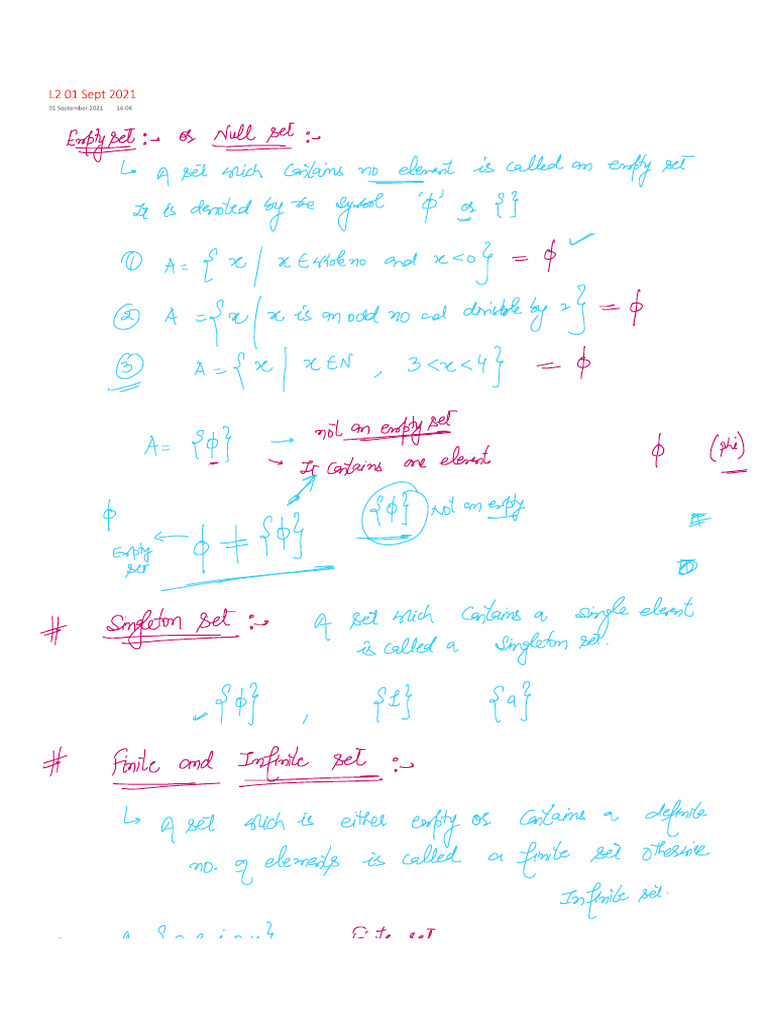 L2 01 Sept 2021
01 September 2021 14:04
Empty set :- or Null set :-
↳ A set which contains no element is called an empty set
It is denoted by the symbol 'ϕ' or { }
① A = { x | x ∈ whole no and x < 0 } = ϕ ✓
② A = { x | x is an odd no and divisible by 2 } = ϕ
③ A = { x | x ∈ N , 3 < x < 4 } = ϕ
A = {ϕ} → not an empty set
→ It contains one element
ϕ (phi)
ϕ
Empty set ← ϕ ≠ {ϕ}
{ϕ} Not an empty
# Singleton set :- A set which contains a single element
is called a singleton set.
✓ {ϕ} , {1} {a}
# Finite and Infinite set :-
↳ A set which is either empty or contains a definite
no. of elements is called a finite set otherwise
Infinite set.